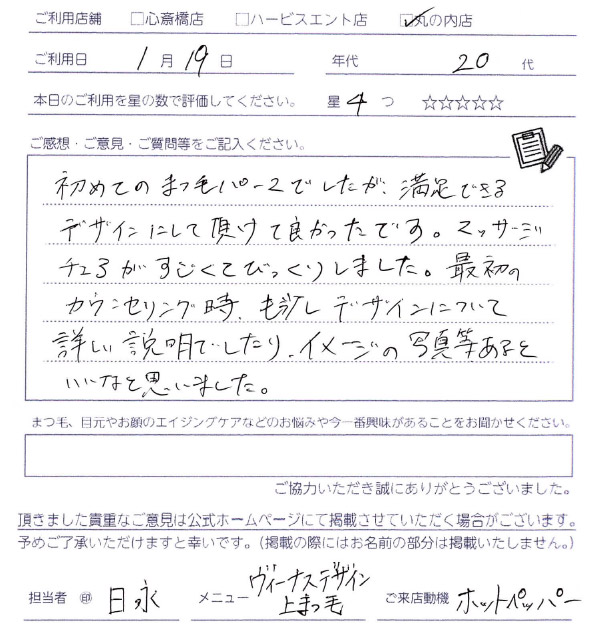 ご利用店舗 □心斎橋店 □ハービスエント店 ☑丸の内店
ご利用日 1月19日 年代 20代
本日のご利用を星の数で評価してください。 星4つ ☆☆☆☆☆
ご感想・ご意見・ご質問等をご記入ください。
初めてのまつ毛パーマでしたが、満足できる
デザインにして頂けて良かったです。マッサージ
チェアがすごくてびっくりしました。最初の
カウンセリング時、もう少しデザインについて
詳しい説明でしたり、イメージの写真等あると
いいなと思いました。
まつ毛、目元やお顔のエイジングケアなどのお悩みや今一番興味があることをお聞かせください。
ご協力いただき誠にありがとうございました。
頂きました貴重なご意見は公式ホームページにて掲載させていただく場合がございます。
予めご了承いただけますと幸いです。(掲載の際にはお名前の部分は掲載いたしません。)
担当者 ㊞ 日永 メニュー ヴィーナスデザイン 上まつ毛 ご来店動機 ホットペッパー